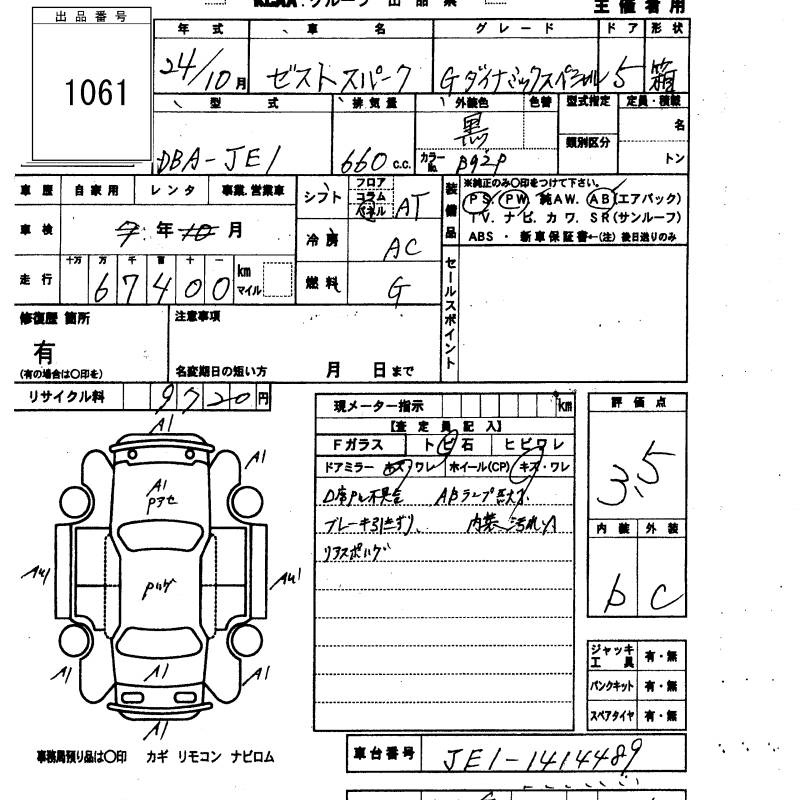 出品番号
1061
主催者用
年式 車名 グレード ドア 形状
24/10月 ゼストスパーク Gダイナミックスペシャル 5 箱
型式 排気量 外装色 色替 型式指定 定員・積載
類別区分
DBA-JE1 660c.c. 黒 カラーNo. B92P 名 トン
車歴 自家用 レンタ 事業.営業車
車検 年 月
走行 十万 万 千 百 十 一 km マイル
67400
シフト フロア コラム パネル AT
冷房 AC
燃料 G
装備品
※純正のみ〇印をつけて下さい。
PS. PW. 純AW. AB(エアバック)
TV. ナビ. カワ. SR(サンルーフ)
ABS ・ 新車保証書←(注) 後日送りのみ
セールスポイント
修復歴 箇所
有
(有の場合は〇印を)
注意事項
名変期日の短い方 月 日まで
リサイクル料 9720円
現メーター指示 km
【査定員記入】
Fガラス トビ石 ヒビワレ
ドアミラー キズ・ワレ ホイール(CP) キズ・ワレ
ABランプ
ブレーキ引きずり、 内装 汚れ
リアスポ
評価点
3.5
内装 外装
b C
A1
A1 A1
A1
A41 A41
A1 A1 A1
A1
ジャッキ工具 有・無
パンクキット 有・無
スペアタイヤ 有・無
事務局預り品は〇印 カギ リモコン ナビロム
車台番号 JE1-1414489